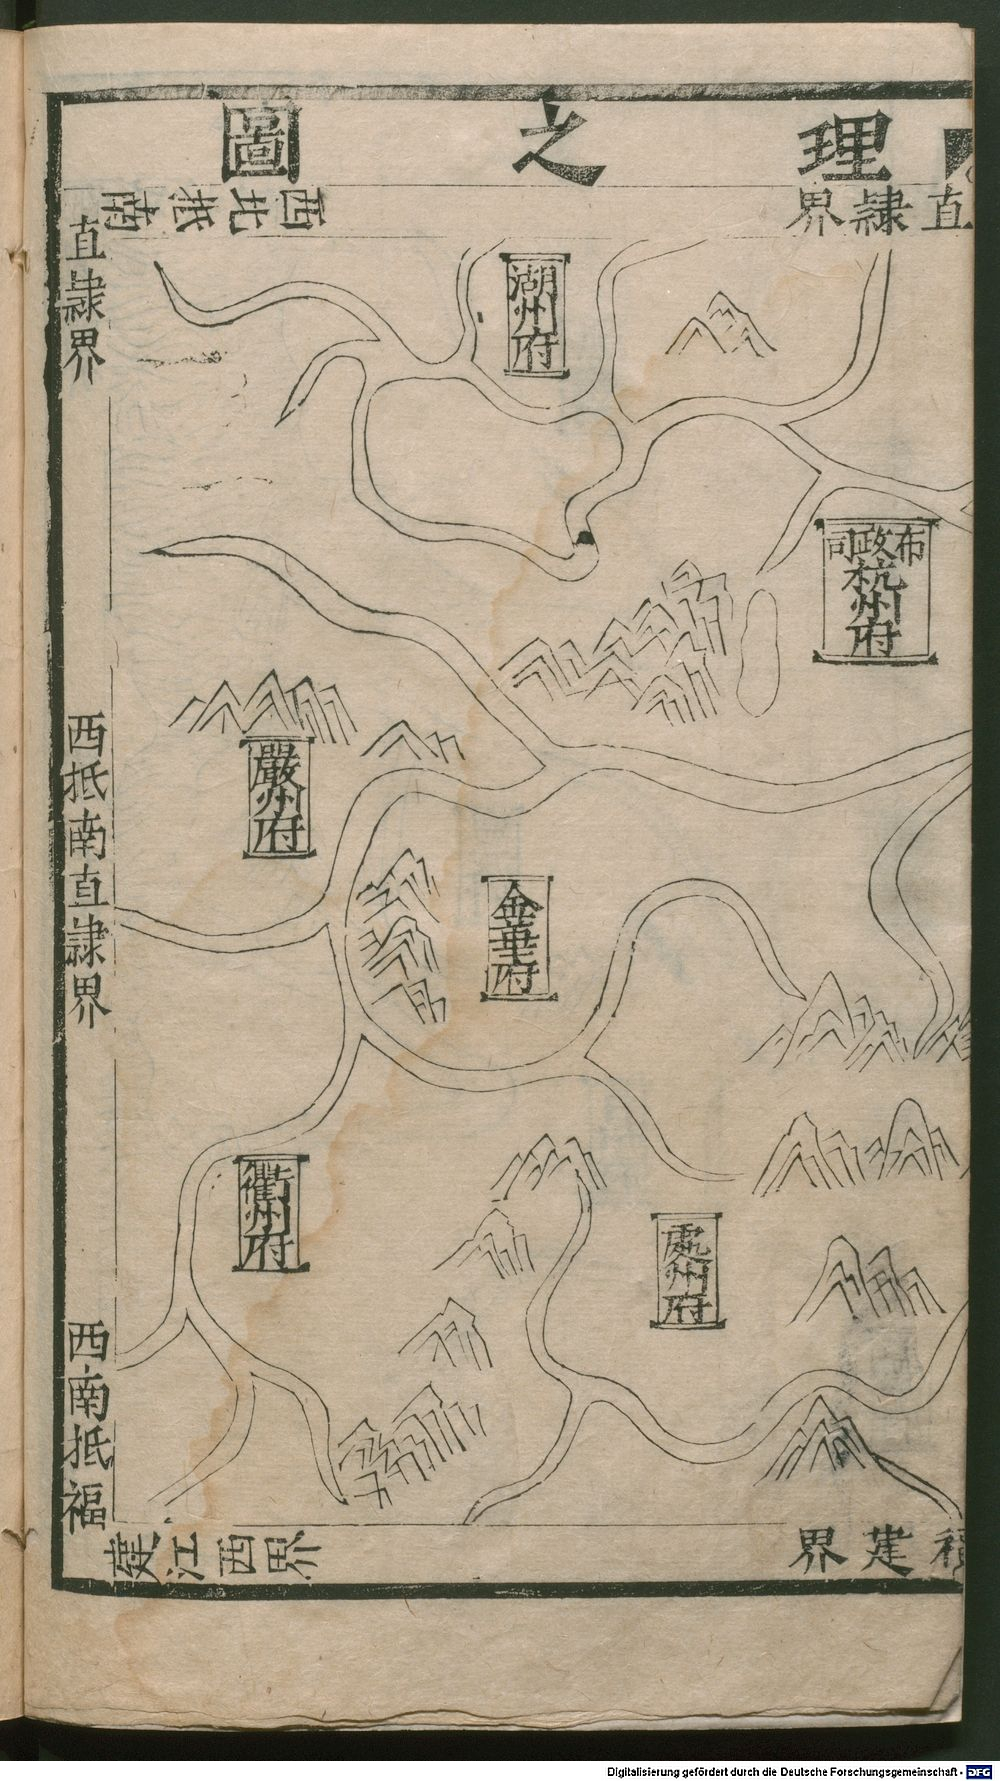 理之圖
直隸界
西北抵南
直隸界
湖州府
布政司
杭州府
嚴州府
金華府
西抵南直隸界
衢州府
處州府
西南抵福
建江西界
福建界
Digitalisierung gefördert durch die Deutsche Forschungsgemeinschaft - DFG